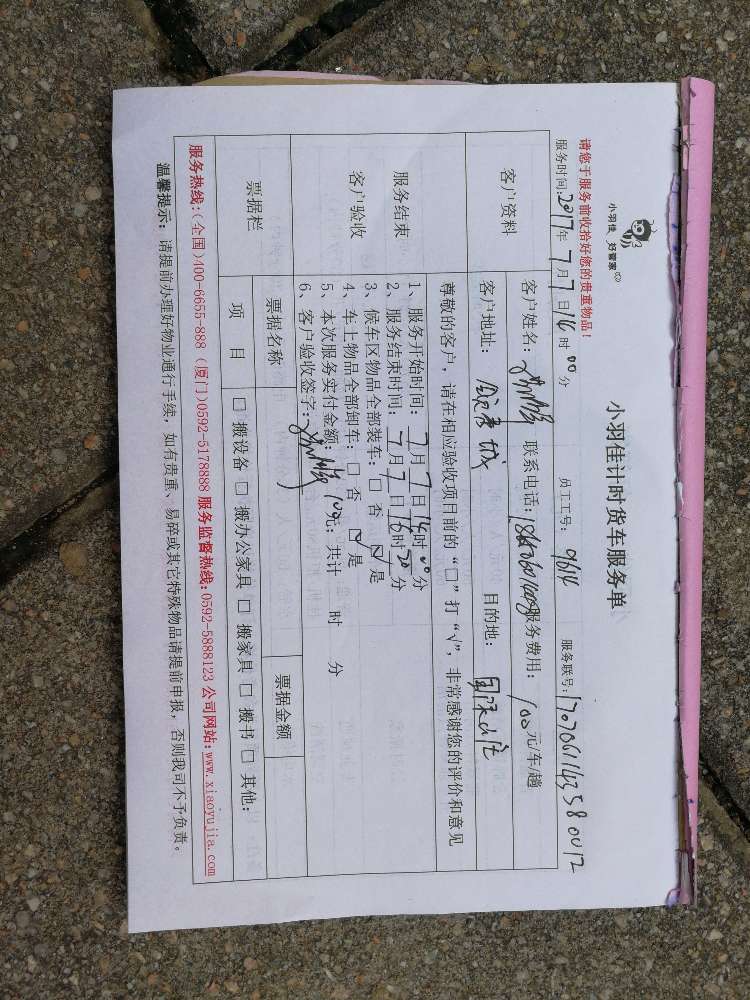 小羽佳 好管家
小羽佳计时货车服务单
请您于服务前收拾好您的贵重物品！
服务时间：2017年7月7日16时00分 员工工号：9614 服务联号：
客户资料
客户姓名： 联系电话： 服务费用：100元/车/趟
客户地址： 城 目的地：
尊敬的客户，请在相应验收项目前的“□”打“√”，非常感谢您的评价和意见
服务结束
客户验收
1、服务开始时间：7月7日16时00分
2、服务结束时间：7月7日16时20分
3、候车区物品全部装车：□ 否 ☑ 是
4、车上物品全部卸车：□ 否 ☑ 是
5、本次服务实付金额：100元；共计 时 分
6、客户验收签字：
票据栏
票据名称 票据金额
项 目 □ 搬设备 □ 搬办公家具 □ 搬家具 □ 搬书 □ 其他：
服务热线：(全国)400-6655-888 (厦门)0592-5178888 服务监督热线：0592-5888123 公司网站：www.xiaoyujia.com
温馨提示：请提前办理好物业通行手续，如有贵重、易碎或其它特殊物品请提前申报，否则我司不予负责。